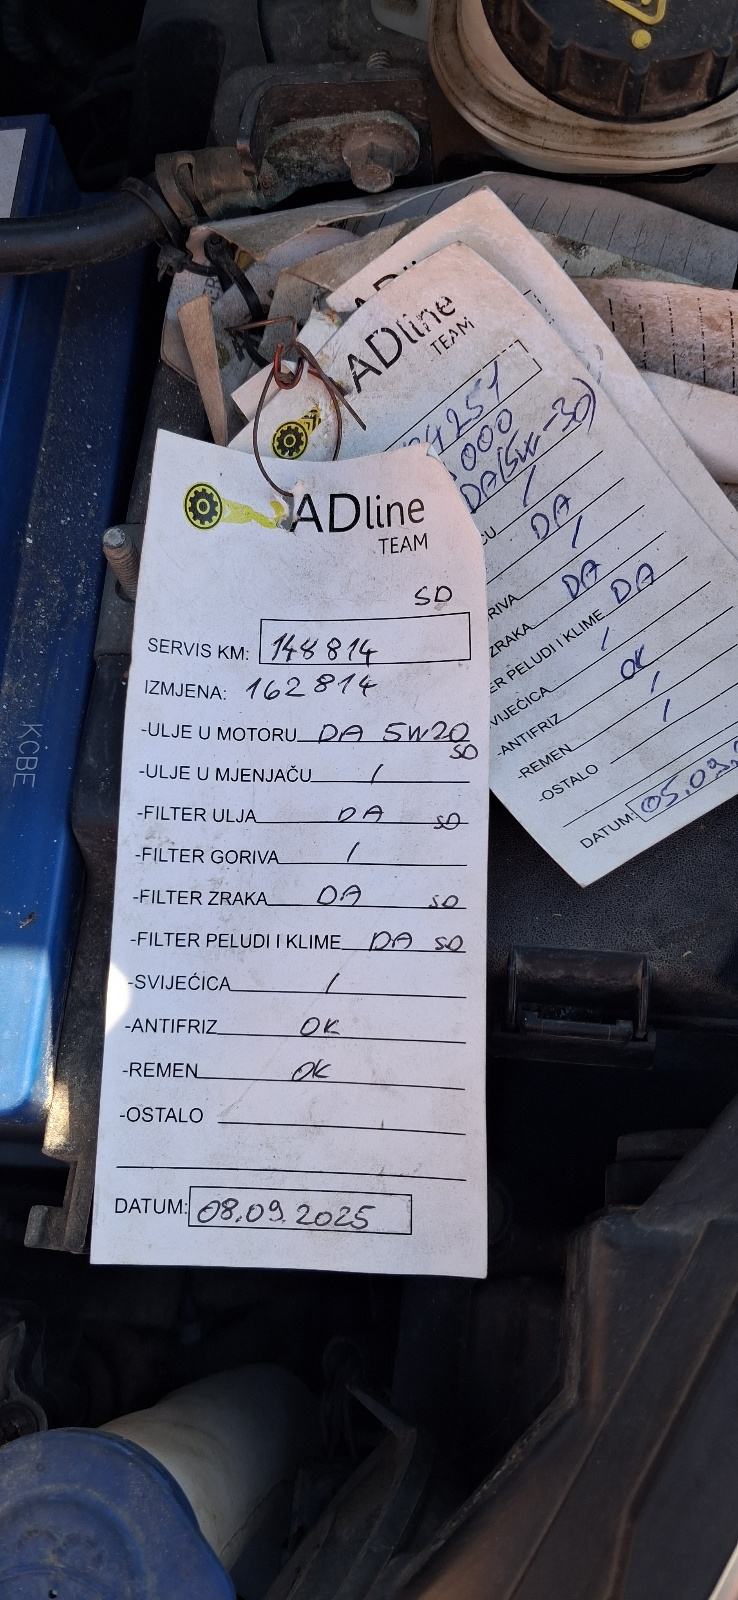 ADline
TEAM
SD
SERVIS KM: 148814
IZMJENA: 162814
-ULJE U MOTORU DA 5W20
SD
-ULJE U MJENJAČU /
-FILTER ULJA DA SD
-FILTER GORIVA /
-FILTER ZRAKA DA SD
-FILTER PELUDI I KLIME DA SD
-SVIJEĆICA /
-ANTIFRIZ OK
-REMEN OK
-OSTALO
DATUM: 08.09.2025
ADline
TEAM
4251
000
DA(5W-30)
/
DA
RIVA /
ZRAKA DA
ER PELUDI I KLIME DA
VIJEĆICA /
-ANTIFRIZ OK
-REMEN /
-OSTALO /
DATUM: 05.09.
KCBE